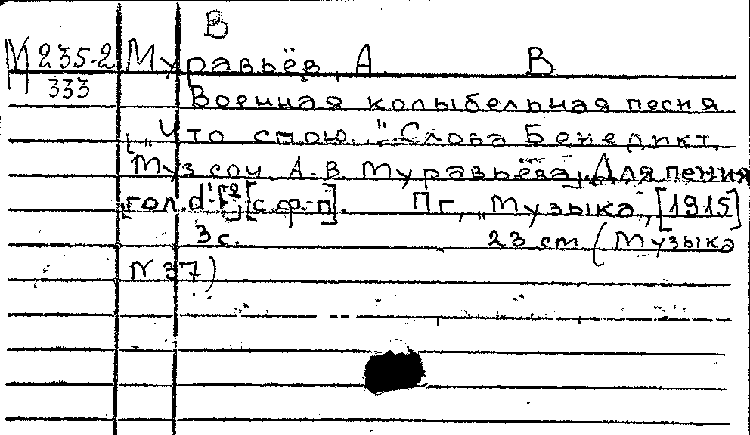 В
М 235-2 Муравьёв, А. В
333
Военная колыбельная песня
[„Что стою."] Слова Бенедикт.
Муз. соч. А. В. Муравьёва. Для пения
[гол. d¹-f²] [с ф-п]. Пг., „Музыка", [1915]
3 с. 23 cm (Музыка
N 37)